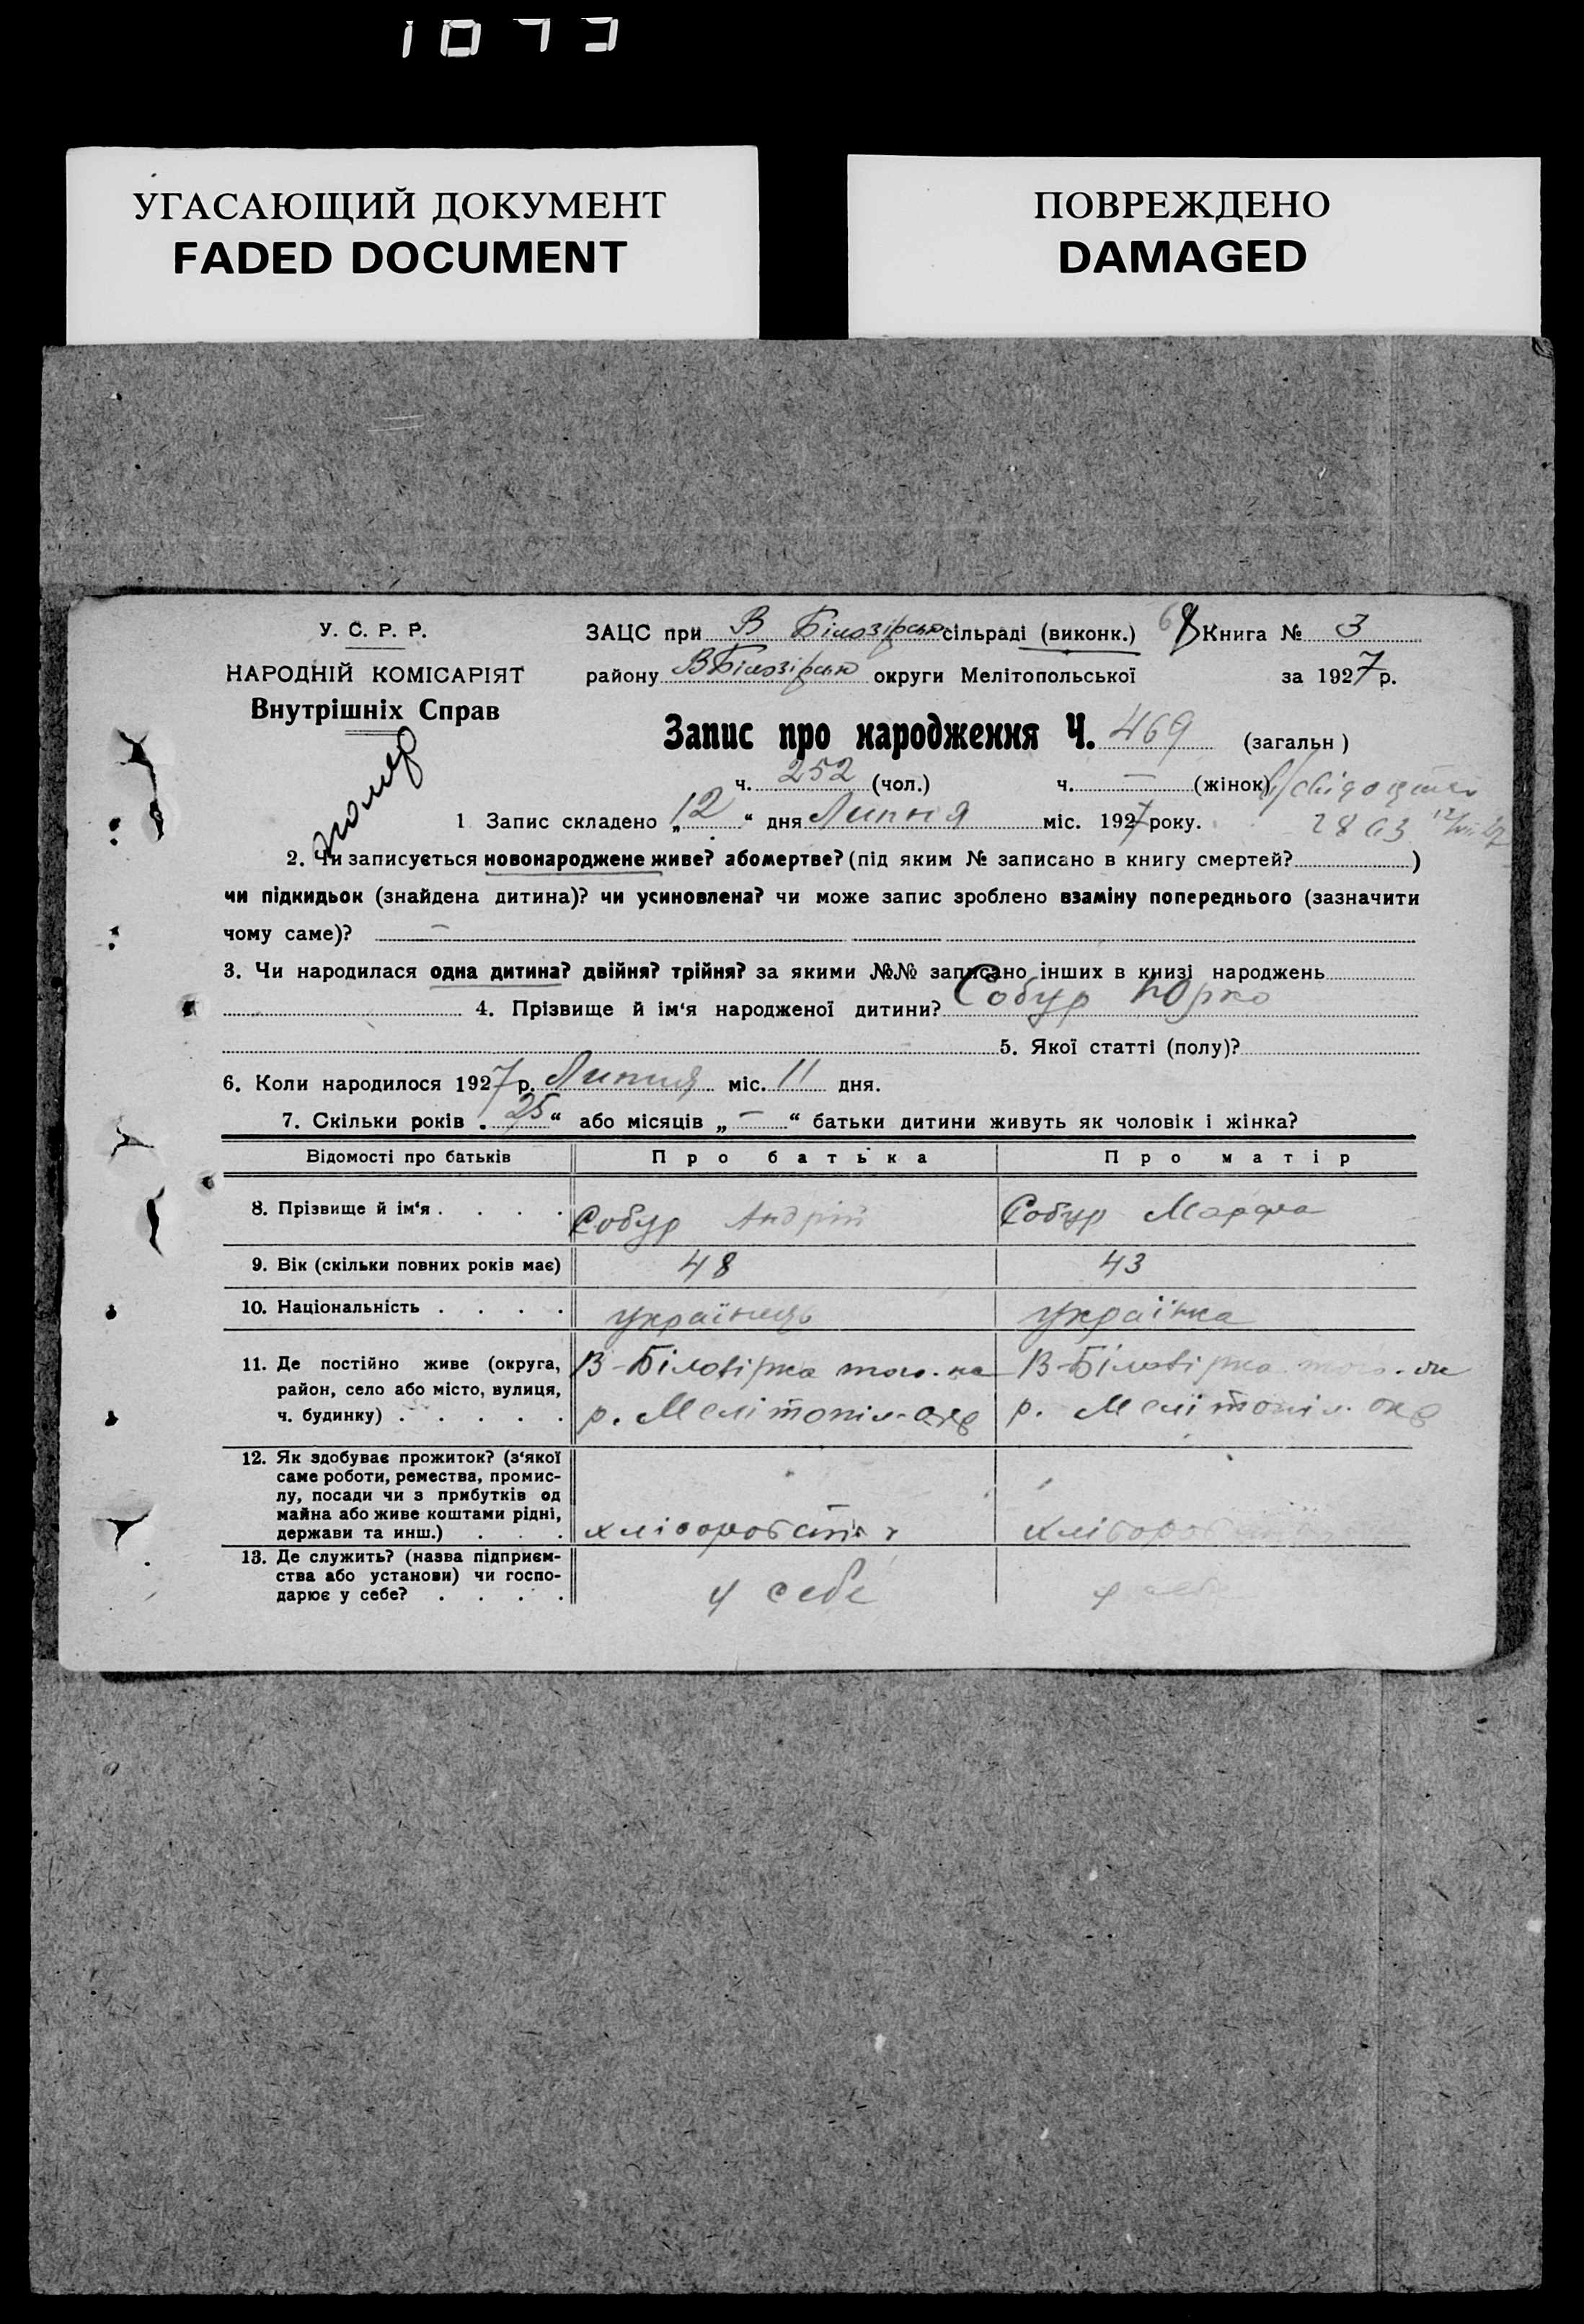 1073
УГАСАЮЩИЙ ДОКУМЕНТ
FADED DOCUMENT
ПОВРЕЖДЕНО
DAMAGED
У. С. Р. Р.
НАРОДНІЙ КОМІСАРІЯТ
Внутрішніх Справ
помер
ЗАЦС при В Білозірсько сільраді (виконк.) 68 Книга № 3
району ВБілозірсько округи Мелітопольської за 1927 р.
Запис про народження Ч. 469 (загальн)
ч. 252 (чол.) ч. — (жінок)
1 Запис складено „12“ дня Липня міс. 1927 року.
2. Чи записується новонароджене живе? або мертве? (під яким № записано в книгу смертей? )
чи підкидьок (знайдена дитина)? чи усиновлена? чи може запис зроблено взаміну попереднього (зазначити
чому саме)? —
3. Чи народилася одна дитина? двійня? трійня? за якими №№ записано інших в книзі народжень
4. Прізвище й ім‘я народженої дитини? Собур Юрко
5. Якої статті (полу)?
6. Коли народилося 1927 р. Липня міс. 11 дня.
7. Скільки років „25“ або місяців „—“ батьки дитини живуть як чоловік і жінка?
Відомості про батьків Про батька Про матір
8. Прізвище й ім‘я . . . . Собур Андрій Собур Марфа
9. Вік (скільки повних років має) 48 43
10. Національність . . . . українець українка
11. Де постійно живе (округа,
район, село або місто, вулиця,
ч. будинку) . . . . .
В-Білозірка того-на
р. Мелітопіл. окр
В-Білозірка того-на
р. Мелітопіл. окр
12. Як здобуває прожиток? (з‘якої
саме роботи, ремества, промис-
лу, посади чи з прибутків од
майна або живе коштами рідні,
держави та инш.) . . .
13. Де служить? (назва підприєм-
ства або установи) чи госпо-
дарює у себе? . . . .
у себе у себе